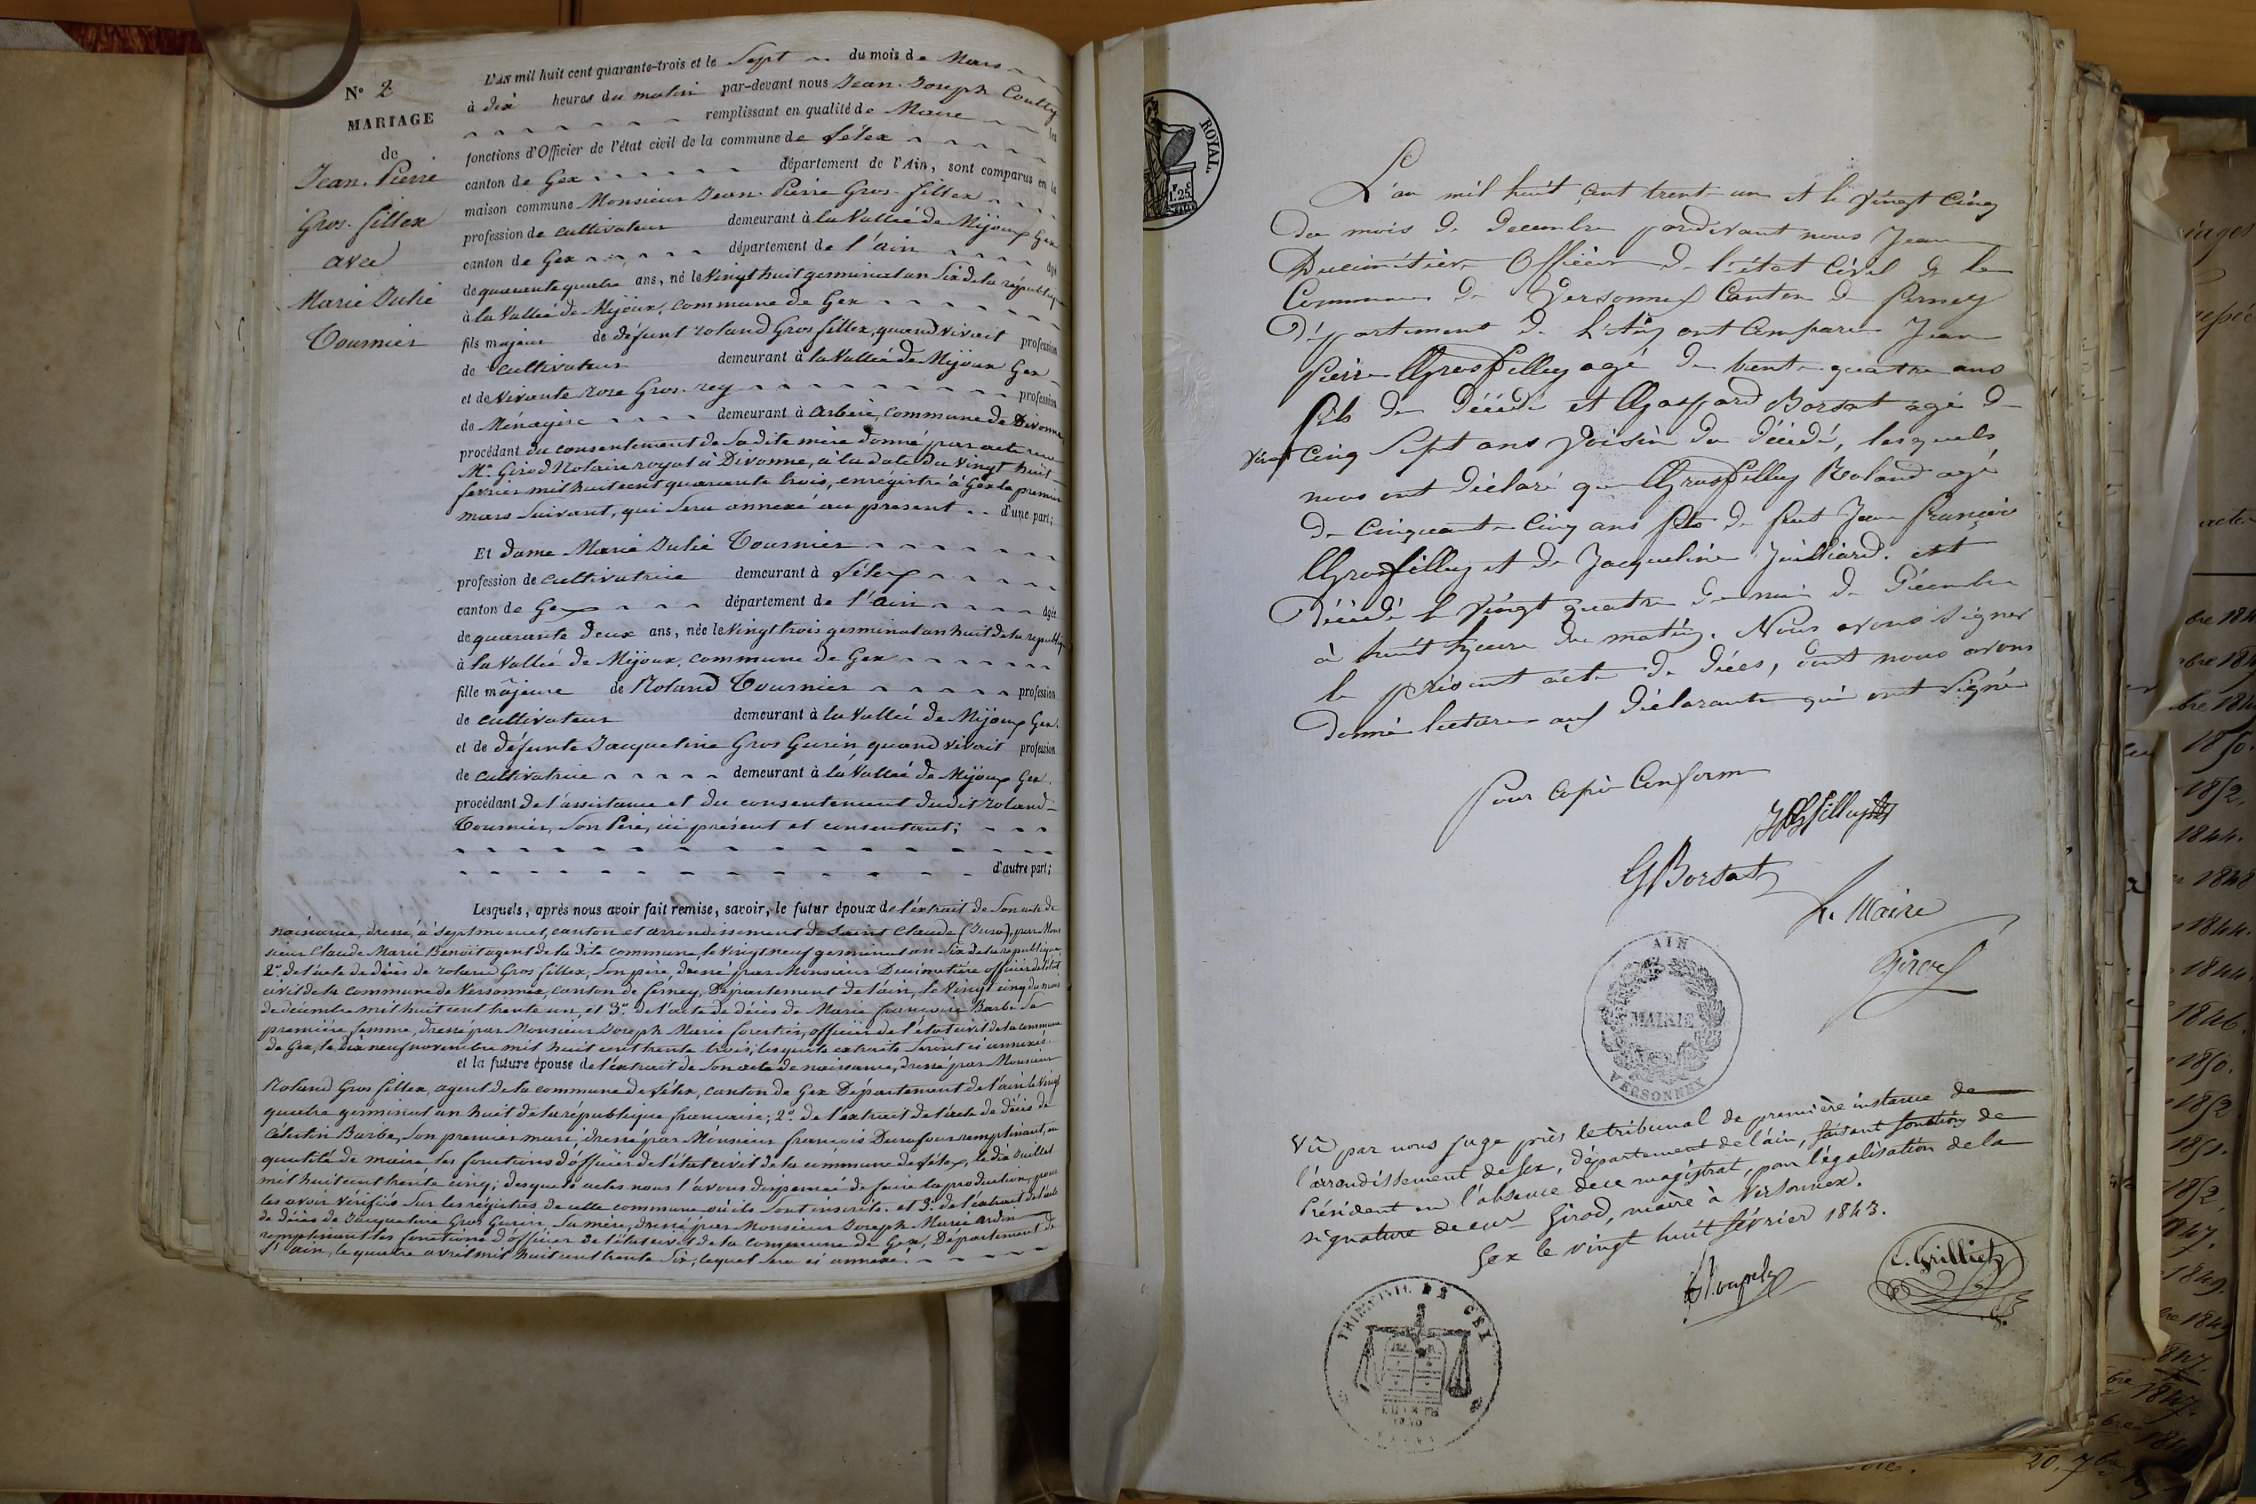 N° 2
MARIAGE
de
Jean. Pierre
Gros. fillex
avec
Marie Julie
Tournier
L'AN mil huit cent quarante-trois et le Sept du mois de Mars
à dix heures du matin par-devant nous Jean. Joseph
remplissant en qualité de Maire les
fonctions d'Officier de l'état civil de la commune de Lélex
canton de Gex département de l'Ain, sont comparus en la
maison commune Monsieur Jean. Pierre Gros. fillex
profession de cultivateur demeurant à la Vallée de Mijoux Gex
canton de Gex département de l'ain âgé
de quarante quatre ans, né le Vingt huit germinal an Six de la république
à la Vallée de Mijoux, commune de Gex
fils majeur de défunt roland Gros fillex, quand vivait profession
de cultivateur demeurant à la Vallée de Mijoux Gex
et de Vivante rose Gros. rey profession
de Ménagère demeurant à arbère, commune de Divonne
procédant du consentement de sa dite mère donné par acte
Mr. Girod Notaire royal à Divonne, à la date du Vingt huit
fevrier mil huit cent quarante trois, enregistré à Gex le premier
mars Suivant, qui Sera annexé au present d'une part;
Et dame Marie Julie Tournier
profession de cultivatrice demeurant à Lélex
canton de Gex département de l'ain âgée
de quarante deux ans, née le Vingt trois germinal an huit de la republique
à la Vallée de Mijoux, commune de Gex
fille majeure de Roland Tournier profession
de cultivateur demeurant à la Vallée de Mijoux Gex.
et de défunte Jacqueline Gros Gurin, quand vivait profession
de cultivatrice demeurant à la Vallée de Mijoux Gex.
procédant de l'assistance et du consentement dudit roland
Tournier, Son Père, ici présent et consentant;
d'autre part;
Lesquels, après nous avoir fait remise, savoir, le futur époux de l'éxtrait de Son acte de
naissance, dressé, à Septmoncel, canton et arrondissement de Saint Claude (Jura), par Mon
sieur Claude Marie Benoit agent de la dite commune, le Vingt neuf germinal an Six de la republique
2°. de l'acte de décès de roland Gros fillex, Son père, dressé par Monsieur Ducimetière officier de l'état
civil de la commune de Versonnex, canton de ferney, Département de l'ain, le Vingt cinq du mois
de décembre mil huit cent trente un, et 3°. de l'acte de décès de Marie françoise Barbe Sa
première femme, dressé par Monsieur Joseph Marie officier de l'état civil de la commune
de Gex, le dix neuf novembre mil huit cent trente trois, lesquels extraits Seront ci annexés.
et la future épouse de l'éxtrait de Son acte de naissance, dressé par Monsieur
Roland Gros fillex, agent de la commune de Lélex, canton de Gex Département de l'ain le Vingt
quatre germinal an huit de la république française; 2°. de l'extrait de l'acte de décès de
Célestin Barbe, Son premier mari, dressé par Monsieur françois Durafour remplissant, en
qualité de maire, les fonctions d'officier de l'état civil de la commune de Lélex, le dix Juillet
mil huit cent trente cinq; desquels actes nous l'avons dispensé de faire la production, pour
les avoir vérifiés Sur les régistres de cette commune où ils Sont inscrits. et 3°. de l'extrait de l'acte
de décès de Jacqueline Gros Gurin, Sa mère, dressé par Monsieur Joseph Marie
remplissant les fonctions d'officier de l'état civil de la commune de Gex, Département de
l'ain, le quatre avril mil huit cent trente Six, lequel Sera ci annexé.
ROYAL
1.25
L'an mil huit cent trent un et le vingt cinq
du mois de decembre pardevant nous Jean
Ducimetière Officier de l'état Civil de la
Commune de Versonnex Canton de ferney
Département de l'Ain ont Comparu Jean
Pierre Grosfilley agé de trente quatre ans
fils du décédé et Gaspard Borsat agé de
vingt Cinq Sept ans Voisin du décédé, lesquels
nous ont déclaré que Grosfilley Roland agé
de cinquante Cinq ans fils de feut Jean François
Grosfilley et de Jacqueline Juilliard. est
Décédé le vingt quatre du mois de Décembre
à huit heure du matin. Nous avons signer
le présent acte de décès, dont nous avons
donné lecture aux déclarants qui ont Signé
Pour Copie Conforme
GBorsat
Le Maire
Girod
AIN
MAIRIE
VERSONNEX
Vû par nous juge près le tribunal de première instance de
l'arrondissement de Gex, département de l'ain, faisant fonctions de
Président en l'absence de ce magistrat, pour légalisation de la
signature de eur Girod, maire à Versonnex.
Gex le vingt huit février 1843.
C. Grilliet
TRIBUNAL DE GEX